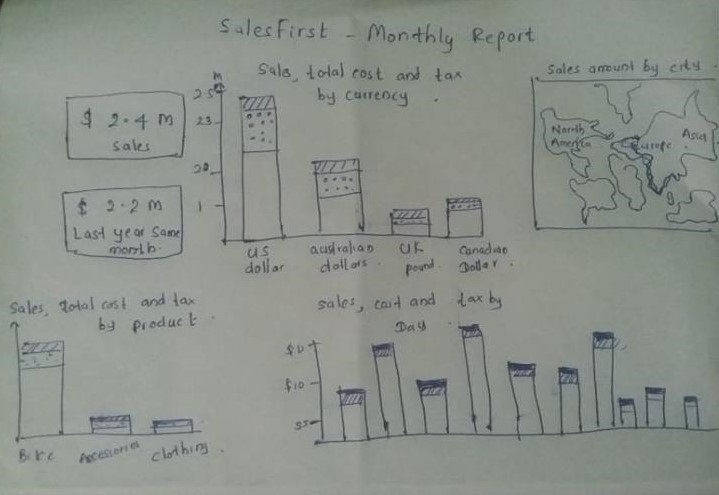 SalesFirst - Monthly Report
$ 2.4 m
sales
$ 2.2 m
Last year same
month.
Sales, total cost and tax
by currency.
m
25
23
20
1
US
dollar
australian
dollars.
UK
pound.
Canadian
Dollar.
Sales amount by city.
North
America
Europe
Asia
Sales, total cost and tax
by product.
Bike
Accessories
clothing.
sales, cost and tax by
Day
$10